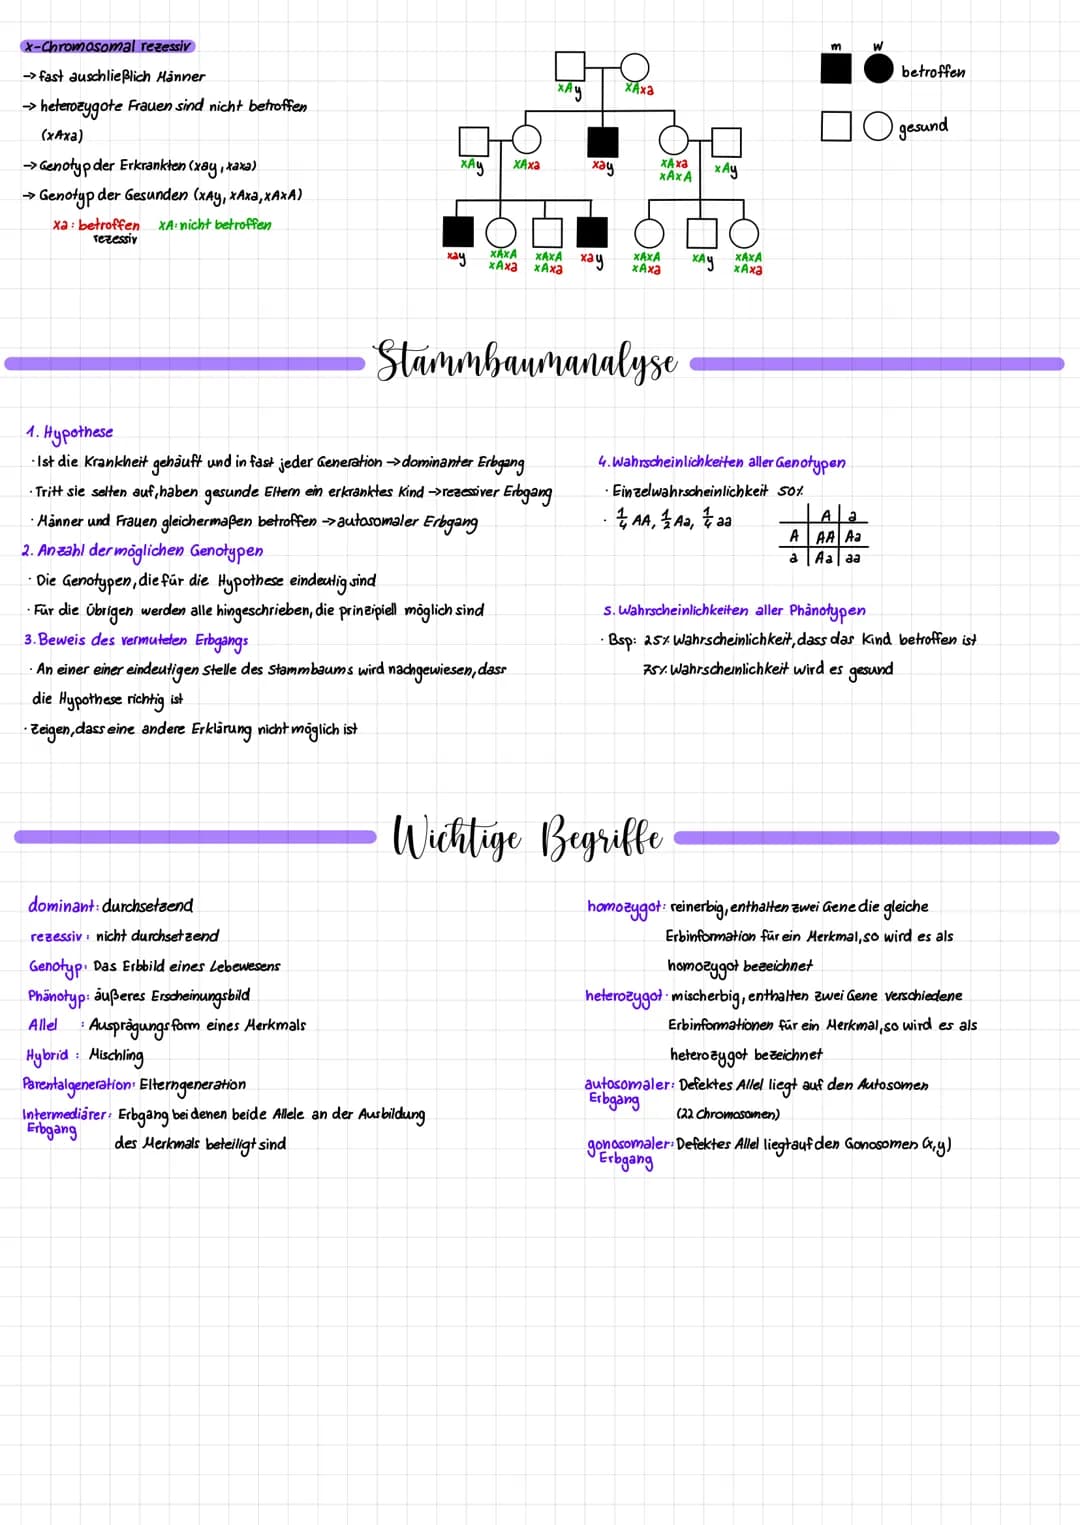 x-Chromosomal rezessiv
→ fast auschließlich Männer
→ heterozygote Frauen sind nicht betroffen
(xAxa)
→ Genotyp der Erkrankten (xay, xaxa)
→ Genotyp der Gesunden (xAy, xAxa, xAxA)
xa: betroffen xA: nicht betroffen
rezessiv
m w
betroffen
gesund
xAy xAxa
xAy xAxa xay xAxa xAy
xAxA
xay xAxA xAxA xay xAxA xAy xAxA
xAxa xAxa xAxa xAxa
Stammbaumanalyse
1. Hypothese
· Ist die Krankheit gehäuft und in fast jeder Generation → dominanter Erbgang
· Tritt sie selten auf, haben gesunde Eltern ein erkranktes Kind → rezessiver Erbgang
· Männer und Frauen gleichermaßen betroffen → autosomaler Erbgang
2. Anzahl der möglichen Genotypen
· Die Genotypen, die für die Hypothese eindeutig sind
· Für die Übrigen werden alle hingeschrieben, die prinzipiell möglich sind
3. Beweis des vermuteten Erbgangs
· An einer einer eindeutigen Stelle des Stammbaums wird nachgewiesen, dass
die Hypothese richtig ist
· Zeigen, dass eine andere Erklärung nicht möglich ist
4. Wahrscheinlichkeiten aller Genotypen
· Einzelwahrscheinlichkeit 50%
· 1/4 AA, 1/2 Aa, 1/4 aa
A a
A AA Aa
a Aa aa
5. Wahrscheinlichkeiten aller Phänotypen
· Bsp: 25% Wahrscheinlichkeit, dass das Kind betroffen ist
75% Wahrscheinlichkeit wird es gesund
Wichtige Begriffe
dominant: durchsetzend
rezessiv: nicht durchsetzend
Genotyp: Das Erbbild eines Lebewesens
Phänotyp: äußeres Erscheinungsbild
Allel : Ausprägungsform eines Merkmals
Hybrid : Mischling
Parentalgeneration: Elterngeneration
Intermediärer: Erbgang bei denen beide Allele an der Ausbildung
Erbgang
des Merkmals beteiligt sind
homozygot: reinerbig, enthalten zwei Gene die gleiche
Erbinformation für ein Merkmal, so wird es als
homozygot bezeichnet
heterozygot: mischerbig, enthalten zwei Gene verschiedene
Erbinformationen für ein Merkmal, so wird es als
heterozygot bezeichnet
autosomaler: Defektes Allel liegt auf den Autosomen
Erbgang
(22 Chromosomen)
gonosomaler: Defektes Allel liegt auf den Gonosomen (x,y)
Erbgang